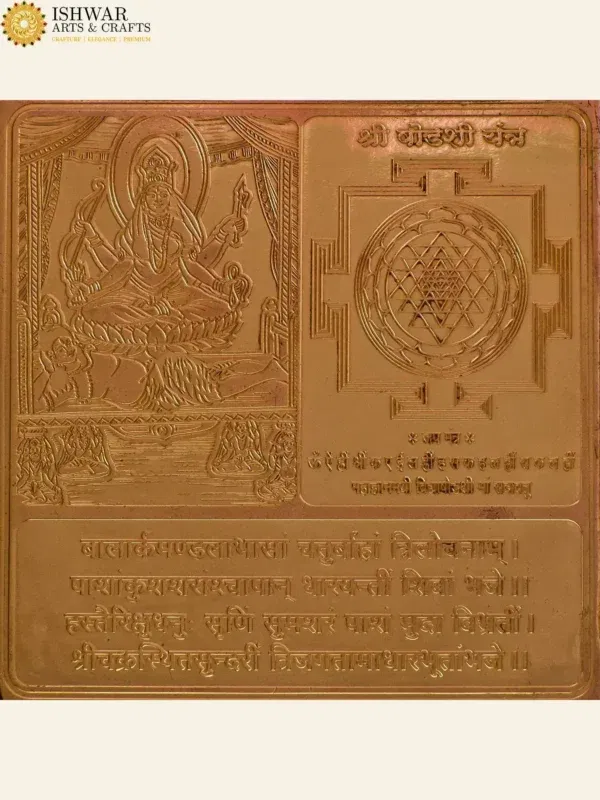 ISHWAR
ARTS & CRAFTS
CRAFTURE | ELEGANCE | PREMIUM
श्री षोडशी यंत्र
जप मंत्र
बालार्कमण्डलाभासां चतुर्बाहां त्रिलोचनाम्।
पाशांकुशशरांश्चापान् धारयन्तीं शिवां भजे।।
हस्तैरिक्षुधनुः सृणि सुमशरं पाशं मुदा विभ्रतीं।
श्रीचक्रस्थितसुन्दरीं त्रिजगतामाधारभूतांभजे।।